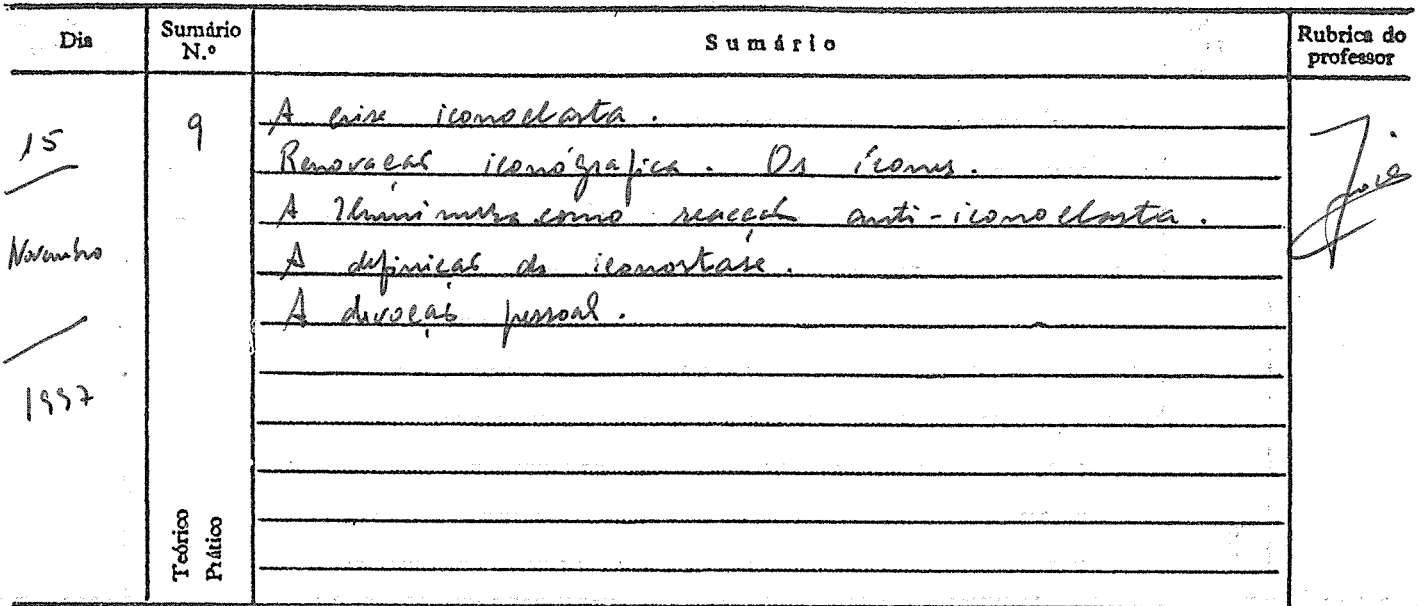 Dia
Sumário N.º
Sumário
Rubrica do professor
15
Novembro
1997
9
A crise iconoclasta.
Renovação iconógrafica. Os ícones.
A Iluminura como reacção anti-iconoclasta.
A definição da iconostáse.
A devoção pessoal.
Teórico
Prático